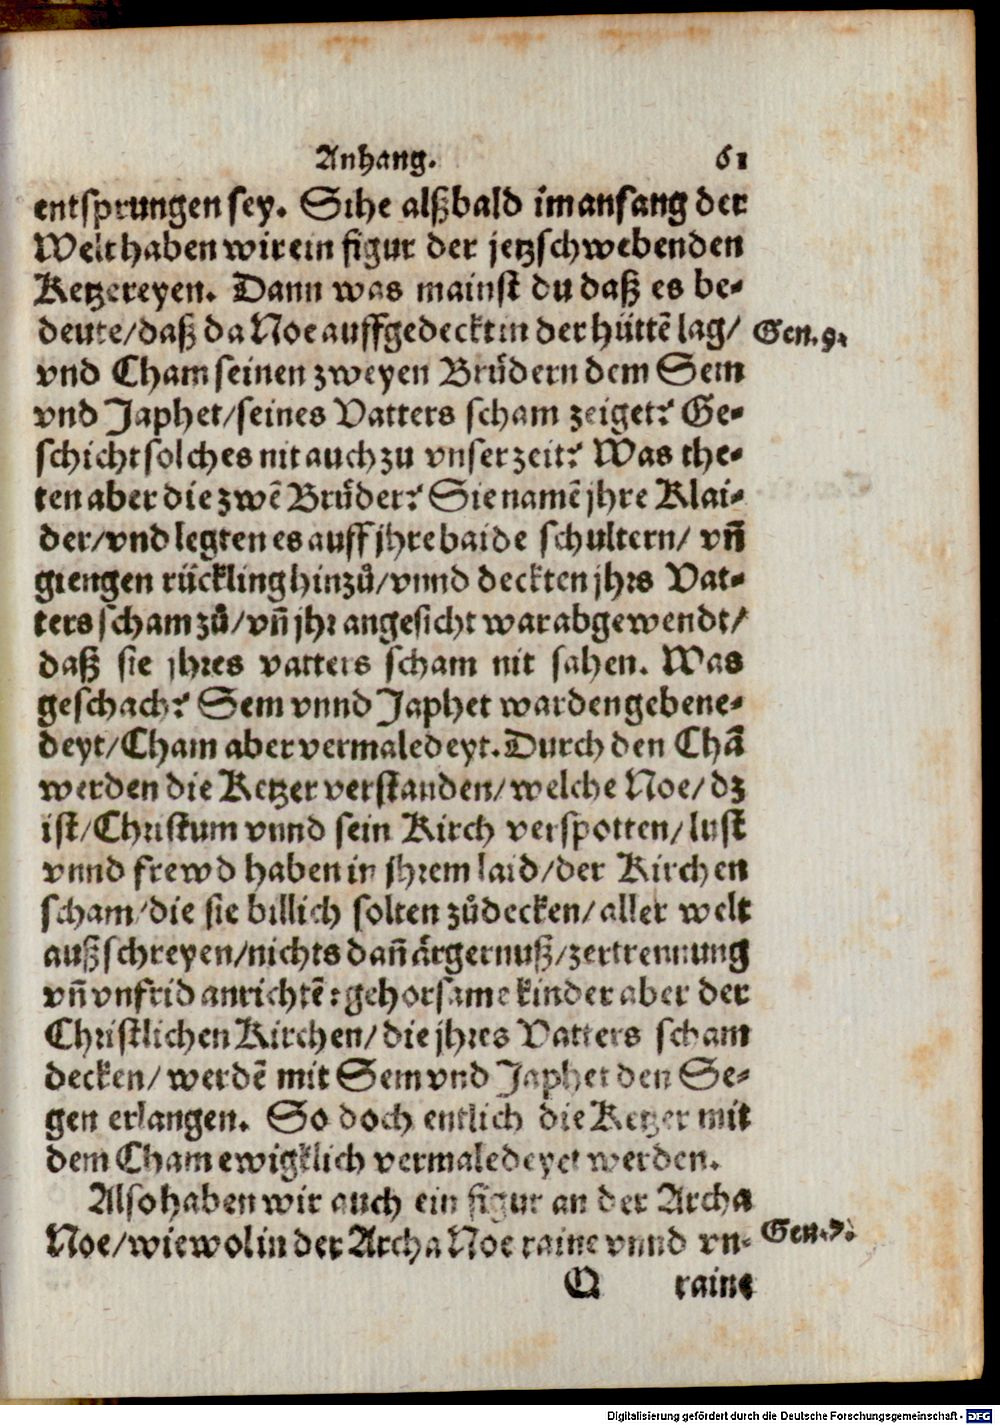 Anhang. 61
entsprungen sey. Sihe alßbald im anfang der
Welt haben wir ein figur der jetzschwebenden
Ketzereyen. Dann was mainst du daß es be-
deute/daß da Noe auffgedeckt in der hüttē lag/ Gen. 9.
vnd Cham seinen zweyen Brüdern dem Sem
vnd Japhet/seines Vatters scham zeiget? Ge-
schicht solches nit auch zu vnser zeit? Was the-
ten aber die zwē Brüder? Sie namē jhre Klai-
der/vnd legten es auff jhre baide schultern/ vñ
giengen rückling hinzů/vnnd deckten jhrs Vat-
ters scham zů/vñ jhr angesicht war abgewendt/
daß sie jhres vatters scham nit sahen. Was
geschach? Sem vnnd Japhet warden gebene-
deyt/Cham aber vermaledeyt. Durch den Chā
werden die Ketzer verstanden/welche Noe/dz
ist/Christum vnnd sein Kirch verspotten/lust
vnnd frewd haben in jhrem laid/der Kirchen
scham/die sie billich solten zůdecken/aller welt
außschreyen/nichts dañ ärgernuß/zertrennung
vñ vnfrid anrichtē: gehorsame kinder aber der
Christlichen Kirchen/die jhres Vatters scham
decken/werdē mit Sem vnd Japhet den Se-
gen erlangen. So doch entlich die Ketzer mit
dem Cham ewigklich vermaledeyet werden.
Also haben wir auch ein figur an der Archa
Noe/wiewol in der Archa Noe raine vnnd vn- Gen. 7.
Q raine
Digitalisierung gefördert durch die Deutsche Forschungsgemeinschaft - DFG